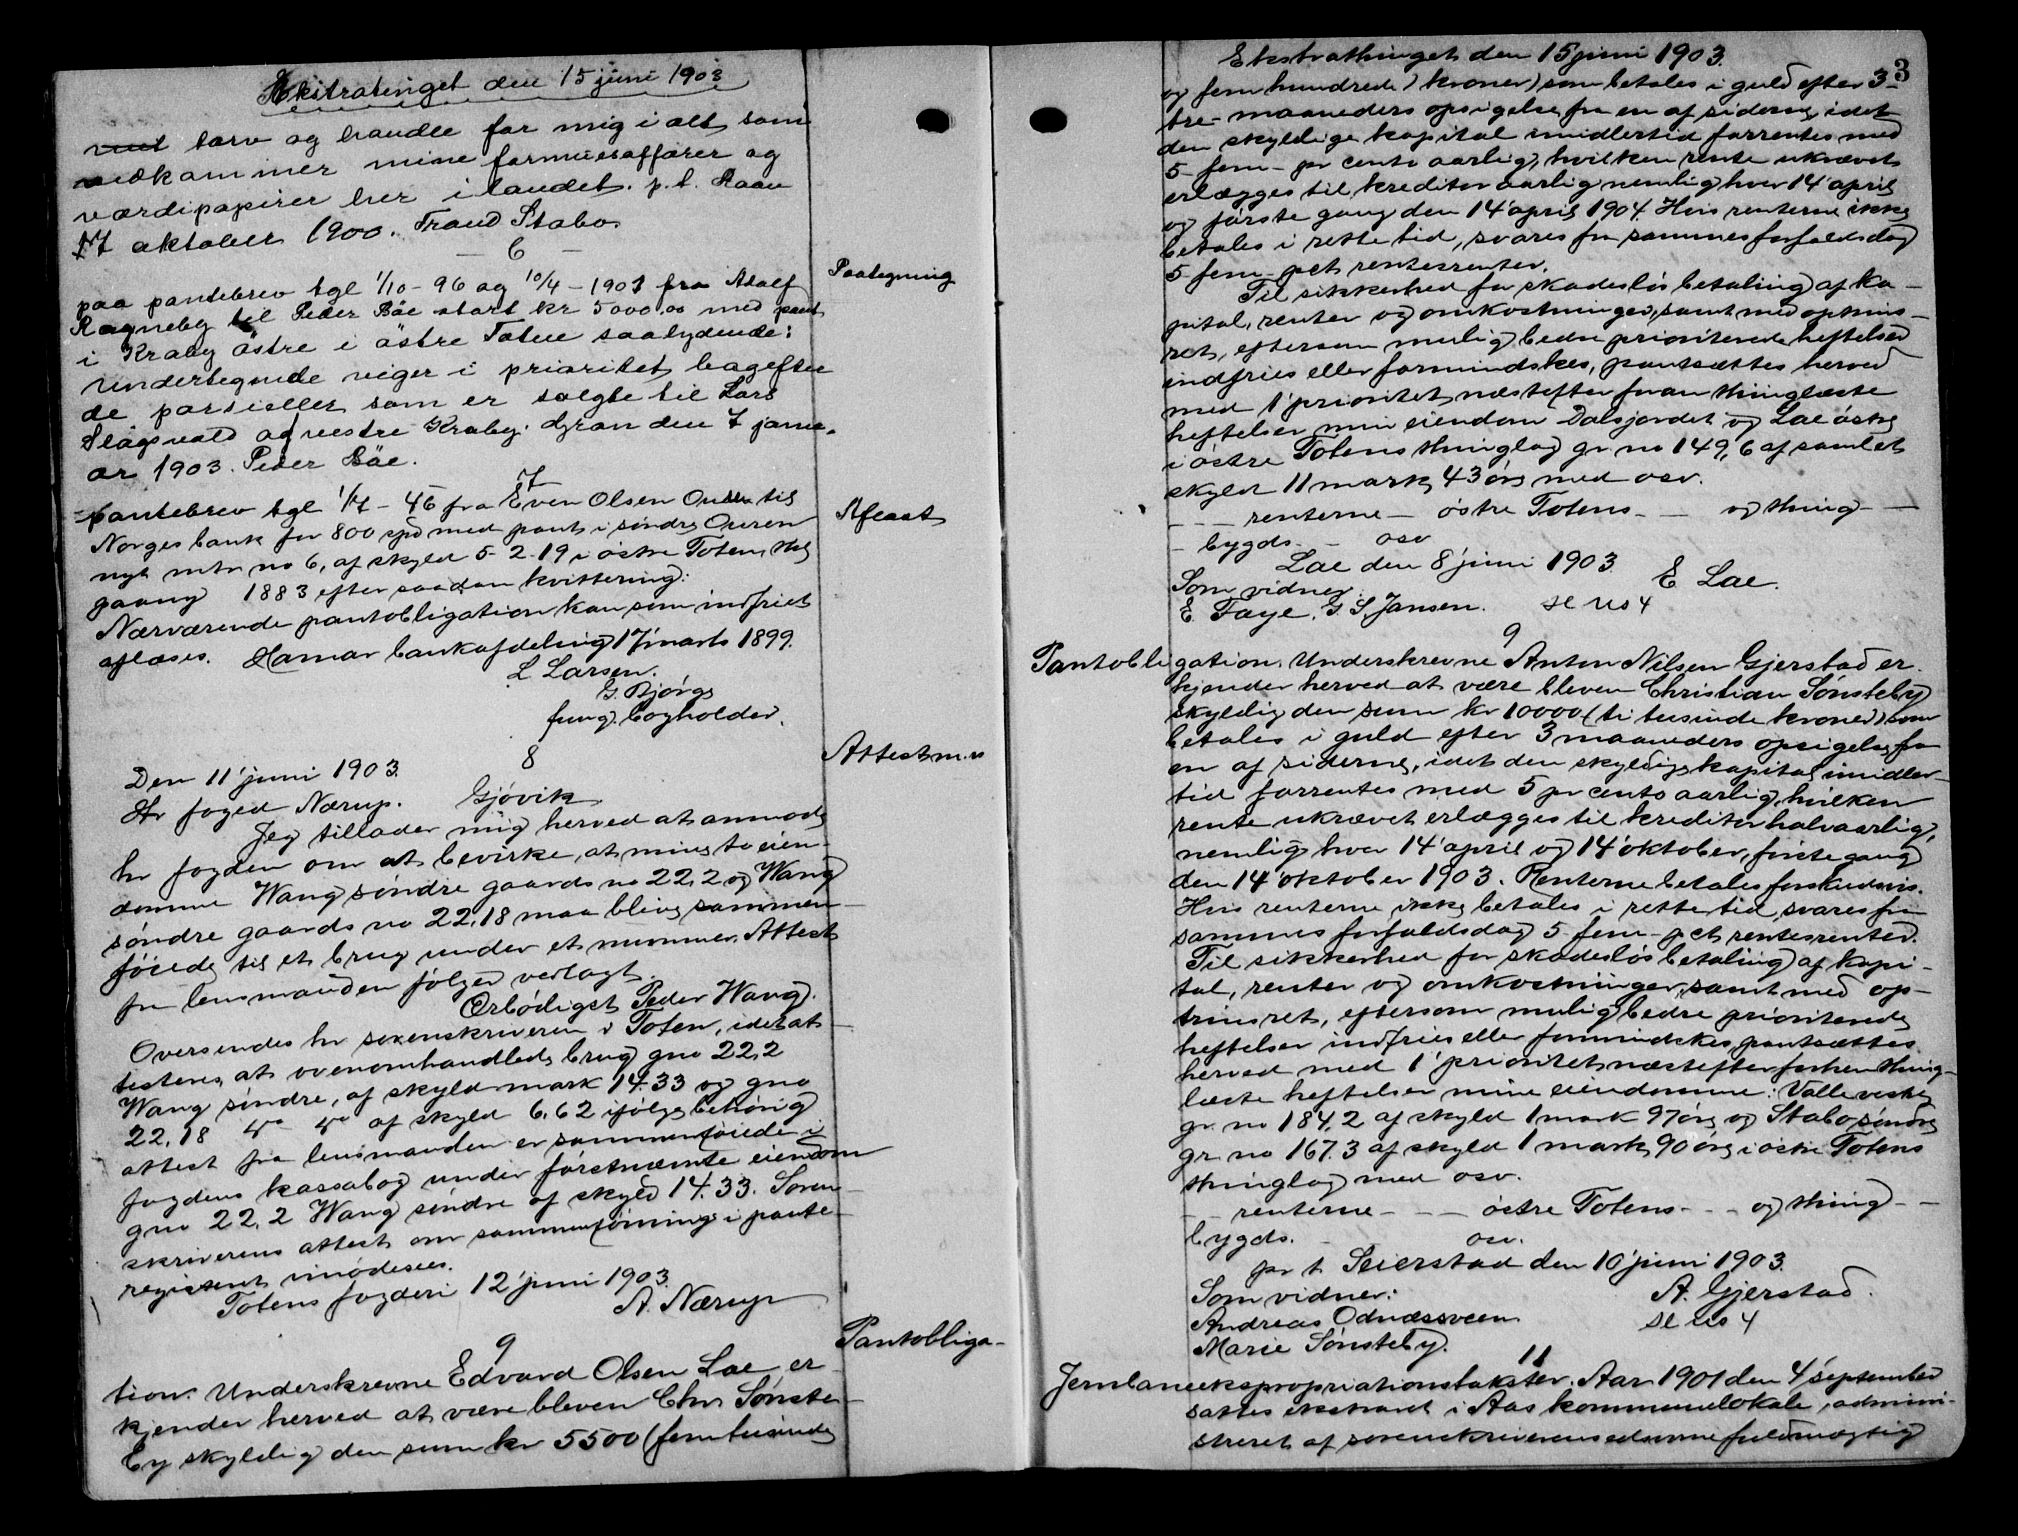 Ekstratinget den 15 juni 1903
tarv og handle for mig i alt som
vedkommer mine formuesaffærer og
værdipapirer her i landet. p.t. Raan
17 oktober 1900. Trond Stabo
— 6 —
Paategning
paa pantebrev tgl 1/10 – 96 og 10/4 – 1901 fra Adolf
Ragneby til Peder Böe stort kr 5000,00 med pant
i Kraby östre i östre Toten saalydende:
Undertegnede viger i prioritet bagefter
de parseller som er solgte til Lars
Slagsvold af vestre Kraby. Gran den 7 janu-
ar 1903. Peder Böe.
7
Aflæst
pantebrev tgl 1/7 – 45 fra Even Olsen Ouren til
Norges bank for 800 spd med pant i söndre Ouren
nyt mtr no 6, af skyld 5-2-19 i östre Toten,
gaang 1883 efter saadan kvittering:
Nærværende pantobligation kan som indfriet
aflæses. Hamar bankafdeling 17' marts 1899.
L Larsen.
G. Bjørge
fung. bogholder.
8
Attest m.v
Den 11' juni 1903.
Hr foged Nærup. Gjøvik
Jeg tillader mig herved at anmode
hr fogden om at bevirke, at mine to eien-
domme Wang søndre gaards no 22,2 og Wang
søndre gaards no 22,18 maa blive sammen-
føiede til et brug under et nummer. Attest
fra lensmanden følger vedlagt.
Ærbødigst Peder Wang.
Oversendes hr sorenskriveren i Toten, idet at-
testeres, at ovenomhandlede brug gno 22,2
Wang søndre, af skyld mark 14.33 og gno
22,18 do do af skyld 6.62 ifølge behørig
attest fra lensmanden er sammenføiede i
fogdens kassabog under førstnæmte eiendom
gno 22,2 Wang søndre af skyld 14.33. Soren-
skriverens attest om sammenføining i pante-
registeret imødesees.
Totens fogderi 12' juni 1903.
A. Nærup
9
Pantobliga-
tion. Underskrevne Edvard Olsen Lae er-
kjender herved at være bleven Chr Sønste-
by skyldig den sum kr 5500 (femtusinde
Ekstrathinget den 15 juni 1903.
3
og femhundrede) kroner) som betales i guld efter 3-
tre- maaneders opsigelse fra en af siderne, idet
den skyldige kapital imidlertid forrentes med
5- fem- pr cento aarlig, hvilken rente ukrævet
erlægges til kreditor aarlig nemlig hver 14' april
og første gang den 14' april 1904. Hvis renterne ikke
betales i rette tid, svares fra sammes forfaldsdag
5- fem- pct rentesrenter.
Til sikkerhed for skadesløs betaling af ka-
pital, renter og omkostninger, samt med optrins-
ret, eftersom mulig bedre prioriterede heftelser
indfries eller formindskes, pantsættes herved
med 1' prioritet næstefter foran thinglæste
heftelser min eiendom Dalsjordet og Lae østre
i østre Totens thinglag gr no 149,6 af samlet
skyld 11 mark 43 øre med osv.
– – – renterne – østre Totens – – og thing –
– bygds – – osv
Lae den 8' juni 1903.
Som vidner:
E Lae.
E Faye. G. S. Jansen.
9
Pantobligation. Underskrevne Anton Nilsen Gjerstad er-
kjender herved at være bleven Christian Sønsteby
skyldig den sum kr 10000 (ti tusinde kroner) som
betales i guld efter 3 maaneders opsigelse fra
en af siderne, idet den skyldige kapital imidler-
tid forrentes med 5 pr cento aarlig, hvilken
rente ukrævet erlægges til kreditor halvaarlig,
nemlig hver 14' april og 14' oktober, første gang
den 14' oktober 1903. Renterne betales forskudsvis.
Hvis renterne ikke betales i rette tid, svares fra
sammes forfaldsdag 5- fem- pct rentesrenter.
Til sikkerhed for skadesløs betaling af kapi-
tal, renter og omkostninger, samt med op-
trinsret, eftersom mulig bedre prioriterede
heftelser indfries eller formindskes, pantsættes
herved med 1' prioritet næstefter forhen thing-
læste heftelser mine eiendomme: Valle vestre
gr. no 184,2 af skyld 1 mark 97 øre og Stabo søndre
gr. no 167.3 af skyld 1 mark 90 øre i østre Totens
thinglag med osv.
– – renterne – – – østre Totens – – og thing – –
bygds. – osv.
pr t. Seierstad den 10' juni 1903.
Som vidner:
A. Gjerstad.
Andreas Odnæssveen
Marie Sønsteby.
11
Jernbaneekspropriationstakster. Aar 1901 den 4' september
sattes ekstraret i Aas kommunelokale, admini-
streret af sorenskriverens edsvorne fuldmægtig